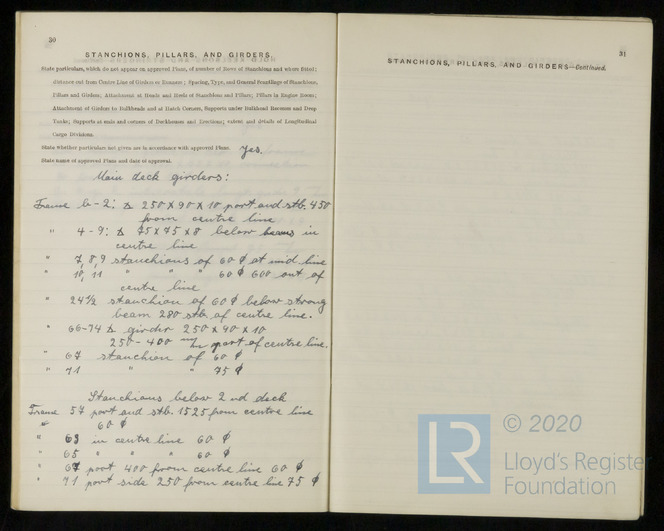 30
STANCHIONS, PILLARS, AND GIRDERS.
State particulars, which do not appear on approved Plans, of number of Rows of Stanchions and where fitted;
distance out from Centre Line of Girders or Runners; Spacing, Type, and General Scantlings of Stanchions,
Pillars and Girders; Attachment at Heads and Heels of Stanchions and Pillars; Pillars in Engine Room;
Attachment of Girders to Bulkheads and at Hatch Corners, Supports under Bulkhead Recesses and Deep
Tanks; Supports at ends and corners of Deckhouses and Erections; extent and details of Longitudinal
Cargo Divisions.
State whether particulars not given are in accordance with approved Plans. Yes.
State name of approved Plans and date of approval.
Main deck girders:
Frame 6-2: 250 x 90 x 10 port and stb. 450
from centre line
" 4-9: 75 x 75 x 8 below beams in
centre line
" 7,8,9 stanchions of 60 ϕ at mid line
" 10, 11 " " " 60 ϕ 600 out of
centre line
" 24½ stanchion of 60 ϕ below strong
beam 280 stb. of centre line.
" 66-74 girder 250 x 90 x 10
250-400 port of centre line.
" 67 stanchion of 60 ϕ
" 71 " " 75 ϕ
Stanchions below 2nd deck
Frame 57 port and stb. 1525 from centre line
" 60 ϕ
" 63 in centre line 60 ϕ
" 65 " " " 60 ϕ
" 67 port 400 from centre line 60 ϕ
" 71 port side 250 from centre line 75 ϕ
31
STANCHIONS, PILLARS, AND GIRDERS—Continued.
LR
© 2020
Lloyd's Register
Foundation